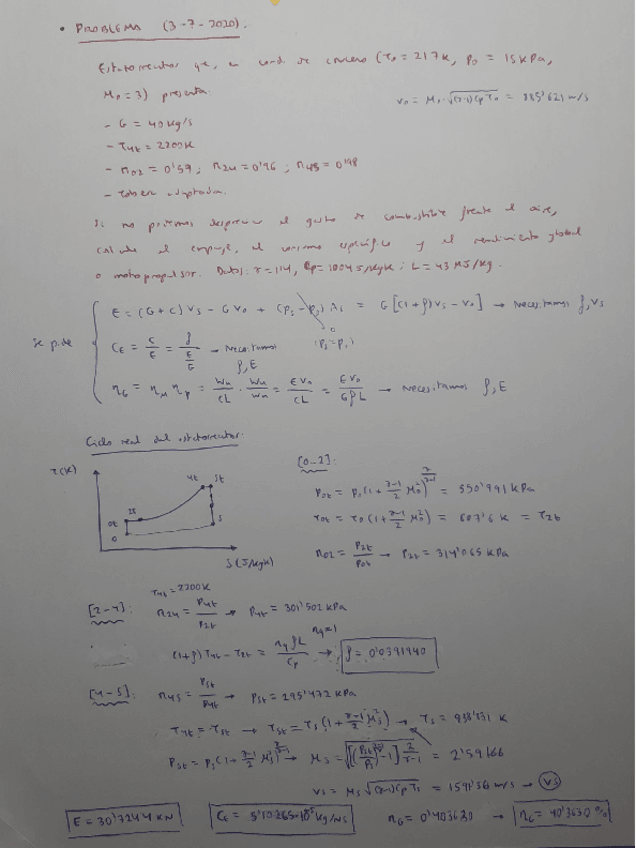 • PROBLEMA (3-7-2020).
Estatorreactor que, en cond de crucero (T₀ = 217K, P₀ = 15 kPa,
M₀ = 3) presenta:
V₀ = M₀ √((γ-1)CpT₀) = 885'621 m/s
- G = 40 kg/s
- T4t = 2200K
- π02 = 0'57; π24 = 0'96; π45 = 0'98
- tobera adaptada.
Si no podemos despreciar el gasto de combustible frente al aire,
calcule el empuje, el consumo específico y el rendimiento global
o motopropulsor. Datos: γ = 1'4, Cp = 1004 J/kgK; L = 43 MJ/kg.
Se pide
E = (G+C) Vs - G V₀ + (Ps - P₀) As = G [(1+f) Vs - V₀] → Necesitamos f, Vs
(Ps = P₀)
CE = C/E = f/(E/G) → Necesitamos f, E
ηG = ηM ηP = Wm/CL · Wu/Wm = E V₀/CL = E V₀/G f L → Necesitamos f, E
Ciclo real del estatorreactor:
T(K)
4t 5t
2t
0t
0
5
S (J/kgK)
[0-2]:
P0t = P₀ (1 + γ-1/2 M₀²)^γ/γ-1 = 550'991 kPa
T0t = T₀ (1 + γ-1/2 M₀²) = 607'6 K = T2t
π02 = P2t/P0t → P2t = 314'065 kPa
T4t = 2200K
[2-4]: π24 = P4t/P2t → P4t = 301'502 kPa
(1+f) T4t - T2t = ηq f L/Cp ηq=1 → f = 0'0391940
[4-5]: π45 = P5t/P4t → P5t = 295'472 kPa
T4t = T5t → T5t = T5 (1 + γ-1/2 M5²) → T5 = 938'831 K
P5t = P5 (1 + γ-1/2 M5²)^γ/γ-1 → M5 = √[(P5t/P5)^γ-1/γ - 1] 2/γ-1 = 2'59166
Vs = M5 √((γ-1)CpT5) = 1591'36 m/s → Vs
E = 30'7244 kN
CE = 5'10265·10⁻⁵ kg/Ns
ηG = 0'403630 → ηG = 40'3630 %